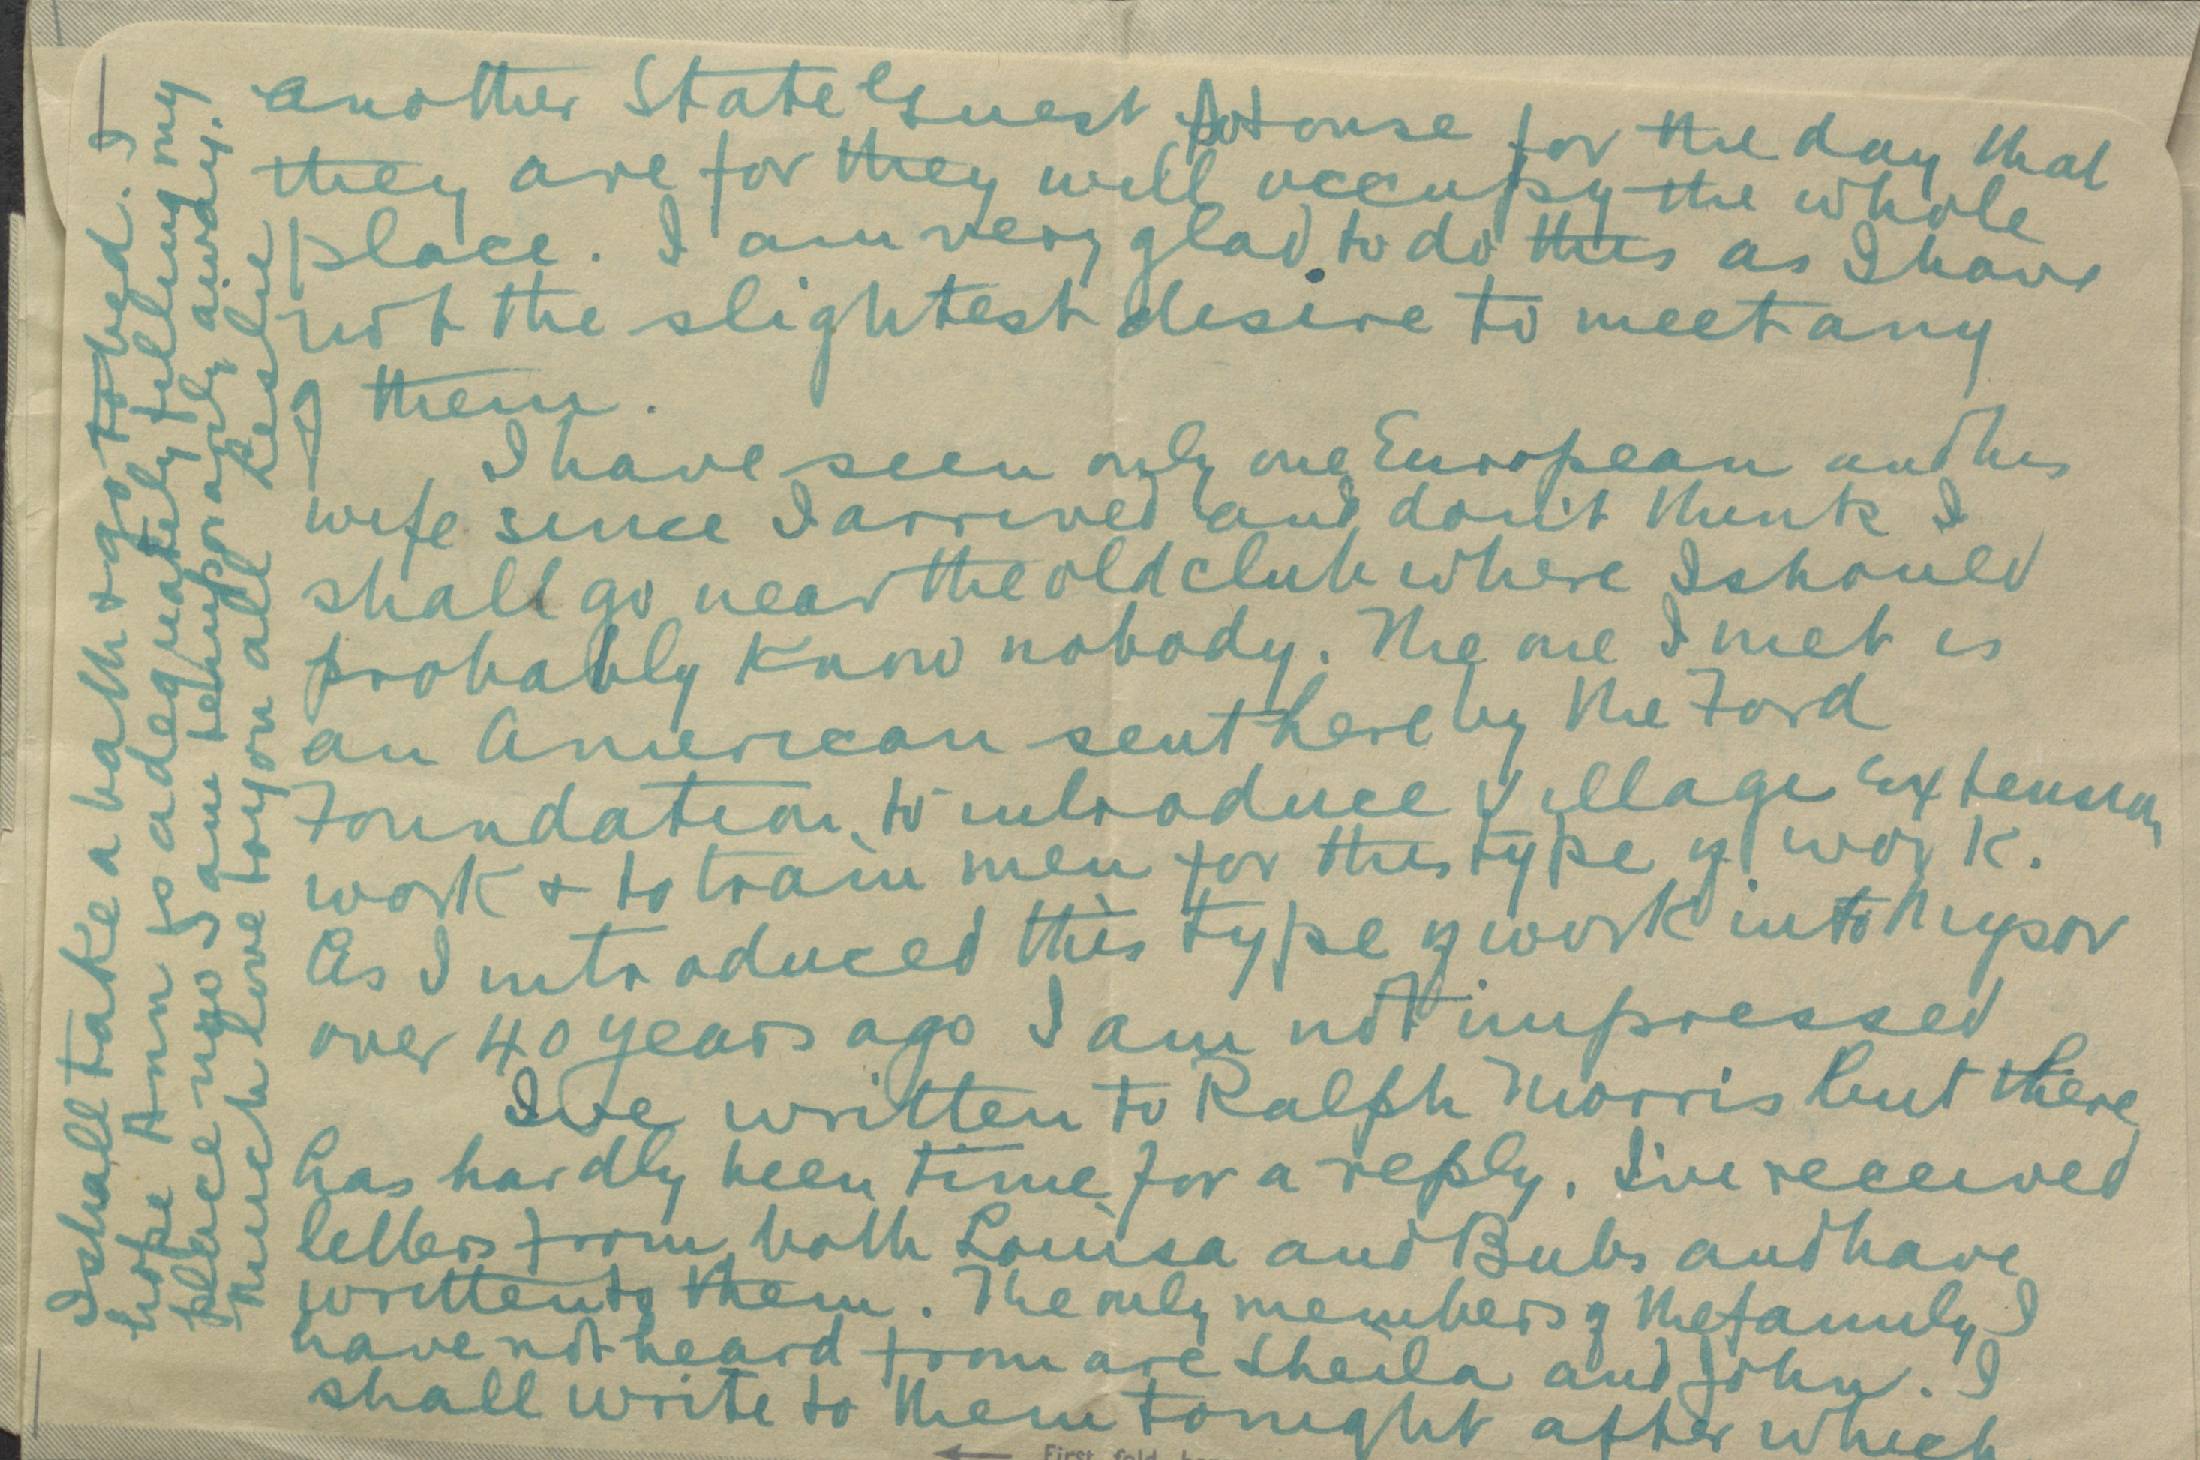 another State Guest House for the day that
they are for they will occupy the whole
place. I am very glad to do this as I have
not the slightest desire to meet any
of them.
I have seen only one European and his
wife since I arrived and don't think I
shall go near the old club where I should
probably know nobody. The one I met is
an American sent here by the Ford
Foundation to introduce Village Extension
work & to train men for this type of work.
As I introduced this type of work into Mysor
over 40 years ago I am not impressed
I've written to Ralph Morris but there
has hardly been time for a reply. I've received
letters from both Louisa and Bubs and have
written to them. The only members of the family I
have not heard from are Sheila and John. I
shall write to them tonight after which
I shall take a bath & go to bed. I
hope Ann is adequately filling my
place now I am temporarily away.
Much love to you all Leslie
First fold